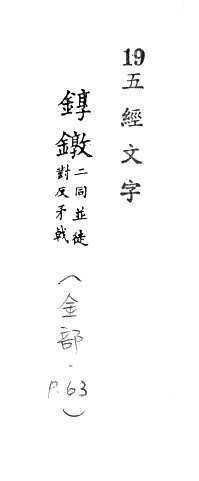 19五經文字
錞鐓二同並徒
對反矛戟
(金部·P.63)